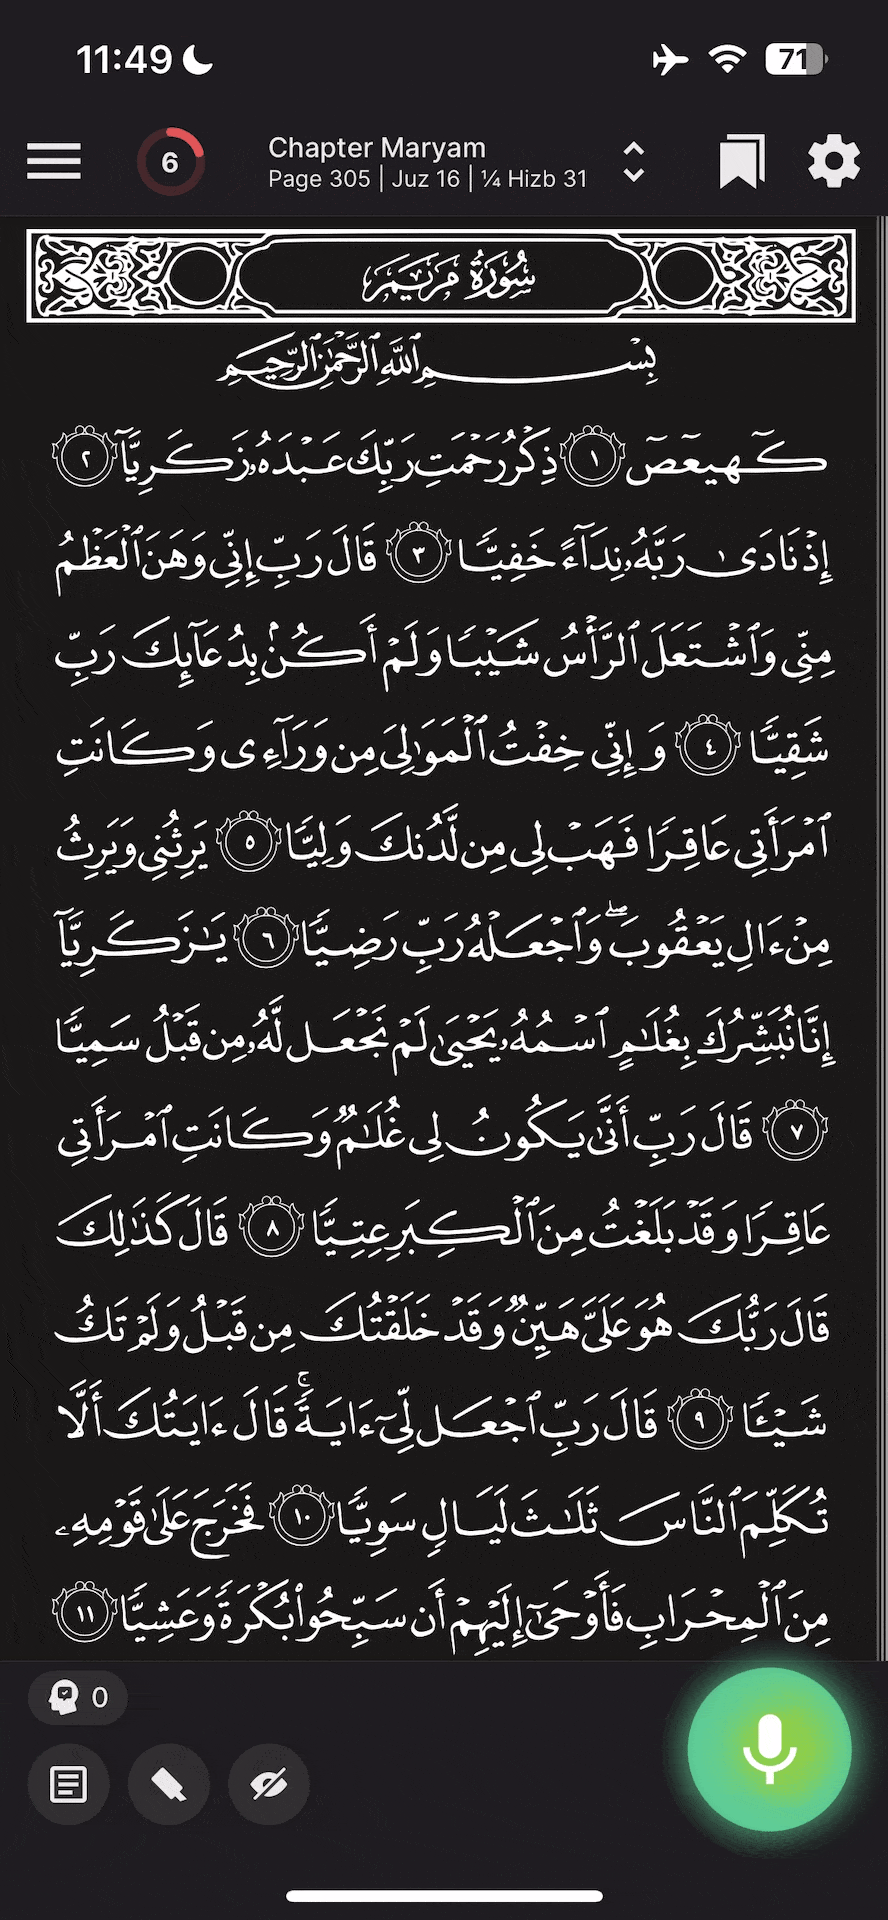 11:49
71
6
Chapter Maryam
Page 305 | Juz 16 | ¼ Hizb 31
سُورَةُ مَرْيَمَ
بِسْمِ ٱللَّهِ ٱلرَّحْمَٰنِ ٱلرَّحِيمِ
كٓهيعٓصٓ ١ ذِكْرُ رَحْمَتِ رَبِّكَ عَبْدَهُۥ زَكَرِيَّآ ٢
إِذْ نَادَىٰ رَبَّهُۥ نِدَآءً خَفِيًّا ٣ قَالَ رَبِّ إِنِّى وَهَنَ ٱلْعَظْمُ
مِنِّى وَٱشْتَعَلَ ٱلرَّأْسُ شَيْبًا وَلَمْ أَكُنۢ بِدُعَآئِكَ رَبِّ
شَقِيًّا ٤ وَإِنِّى خِفْتُ ٱلْمَوَٰلِىَ مِن وَرَآءِى وَكَانَتِ
ٱمْرَأَتِى عَاقِرًا فَهَبْ لِى مِن لَّدُنكَ وَلِيًّا ٥ يَرِثُنِى وَيَرِثُ
مِنْ ءَالِ يَعْقُوبَ ۖ وَٱجْعَلْهُ رَبِّ رَضِيًّا ٦ يَٰزَكَرِيَّآ
إِنَّا نُبَشِّرُكَ بِغُلَٰمٍ ٱسْمُهُۥ يَحْيَىٰ لَمْ نَجْعَل لَّهُۥ مِن قَبْلُ سَمِيًّا
٧ قَالَ رَبِّ أَنَّىٰ يَكُونُ لِى غُلَٰمٌ وَكَانَتِ ٱمْرَأَتِى
عَاقِرًا وَقَدْ بَلَغْتُ مِنَ ٱلْكِبَرِ عِتِيًّا ٨ قَالَ كَذَٰلِكَ
قَالَ رَبُّكَ هُوَ عَلَىَّ هَيِّنٌ وَقَدْ خَلَقْتُكَ مِن قَبْلُ وَلَمْ تَكُ
شَيْـًٔا ٩ قَالَ رَبِّ ٱجْعَل لِّىٓ ءَايَةً ۚ قَالَ ءَايَتُكَ أَلَّا
تُكَلِّمَ ٱلنَّاسَ ثَلَٰثَ لَيَالٍ سَوِيًّا ١٠ فَخَرَجَ عَلَىٰ قَوْمِهِۦ
مِنَ ٱلْمِحْرَابِ فَأَوْحَىٰٓ إِلَيْهِمْ أَن سَبِّحُوا۟ بُكْرَةً وَعَشِيًّا ١١
0